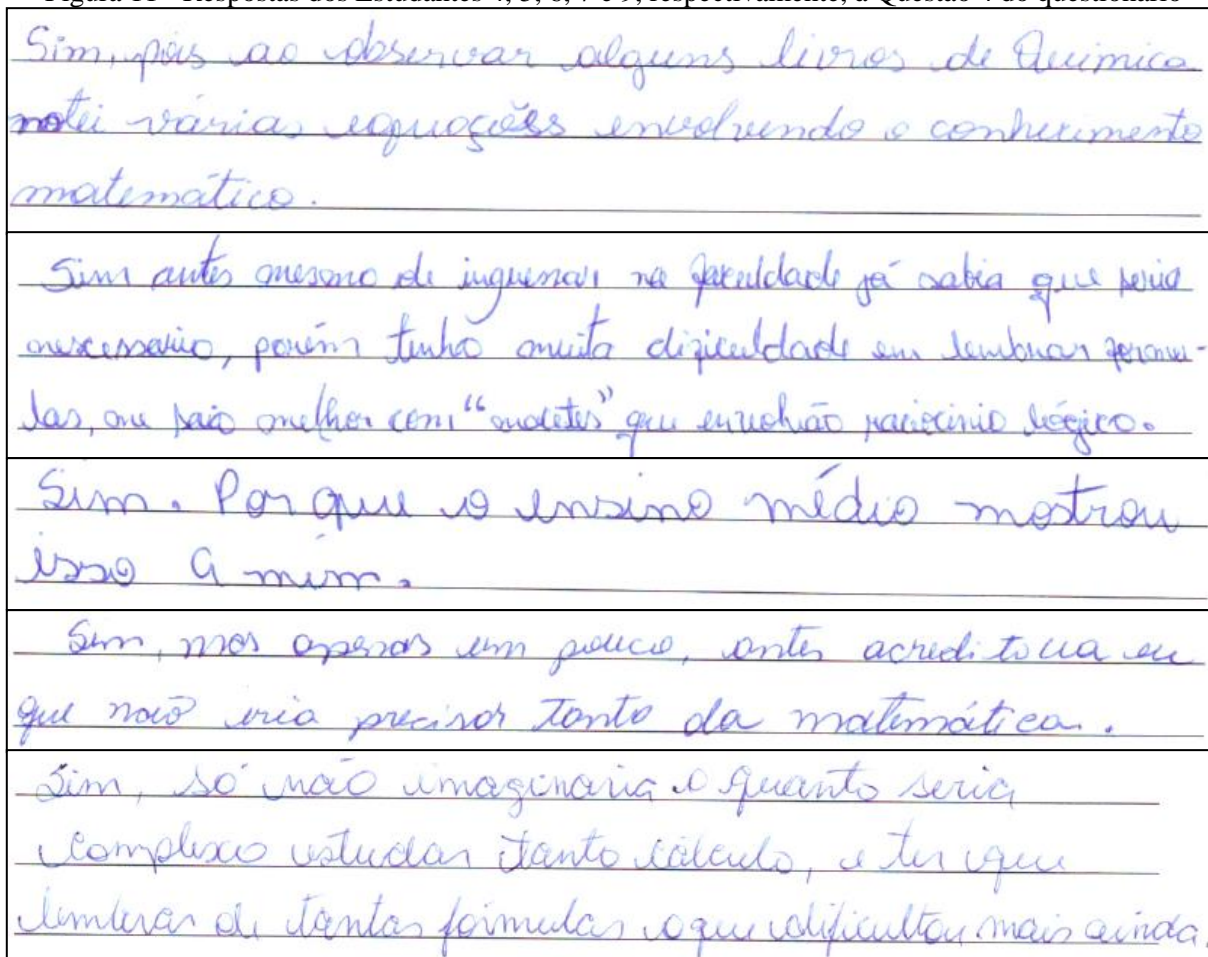 Figura 11 - Respostas dos Estudantes 4, 5, 6, 7 e 9, respectivamente, à Questão 4 do questionário
Sim, pois ao observar alguns livros de Química
notei várias equações envolvendo o conhecimento
matemático.
Sim antes mesmo de ingressar na faculdade já sabia que seria
nescessario, porém tenho muita dificuldade em lembrar formu-
las, me saio melhor com "macetes" que envolvão raciocinio lógico.
Sim. Por que o ensino médio mostrou
isso a mim.
Sim, mas apenas um pouco, antes acreditava eu
que não iria precisar tanto da matemática.
Sim, só não imaginaria o quanto seria
complexo estudar tanto cálculo, e ter que
lembrar de tantas fórmulas o que dificultou mais ainda.